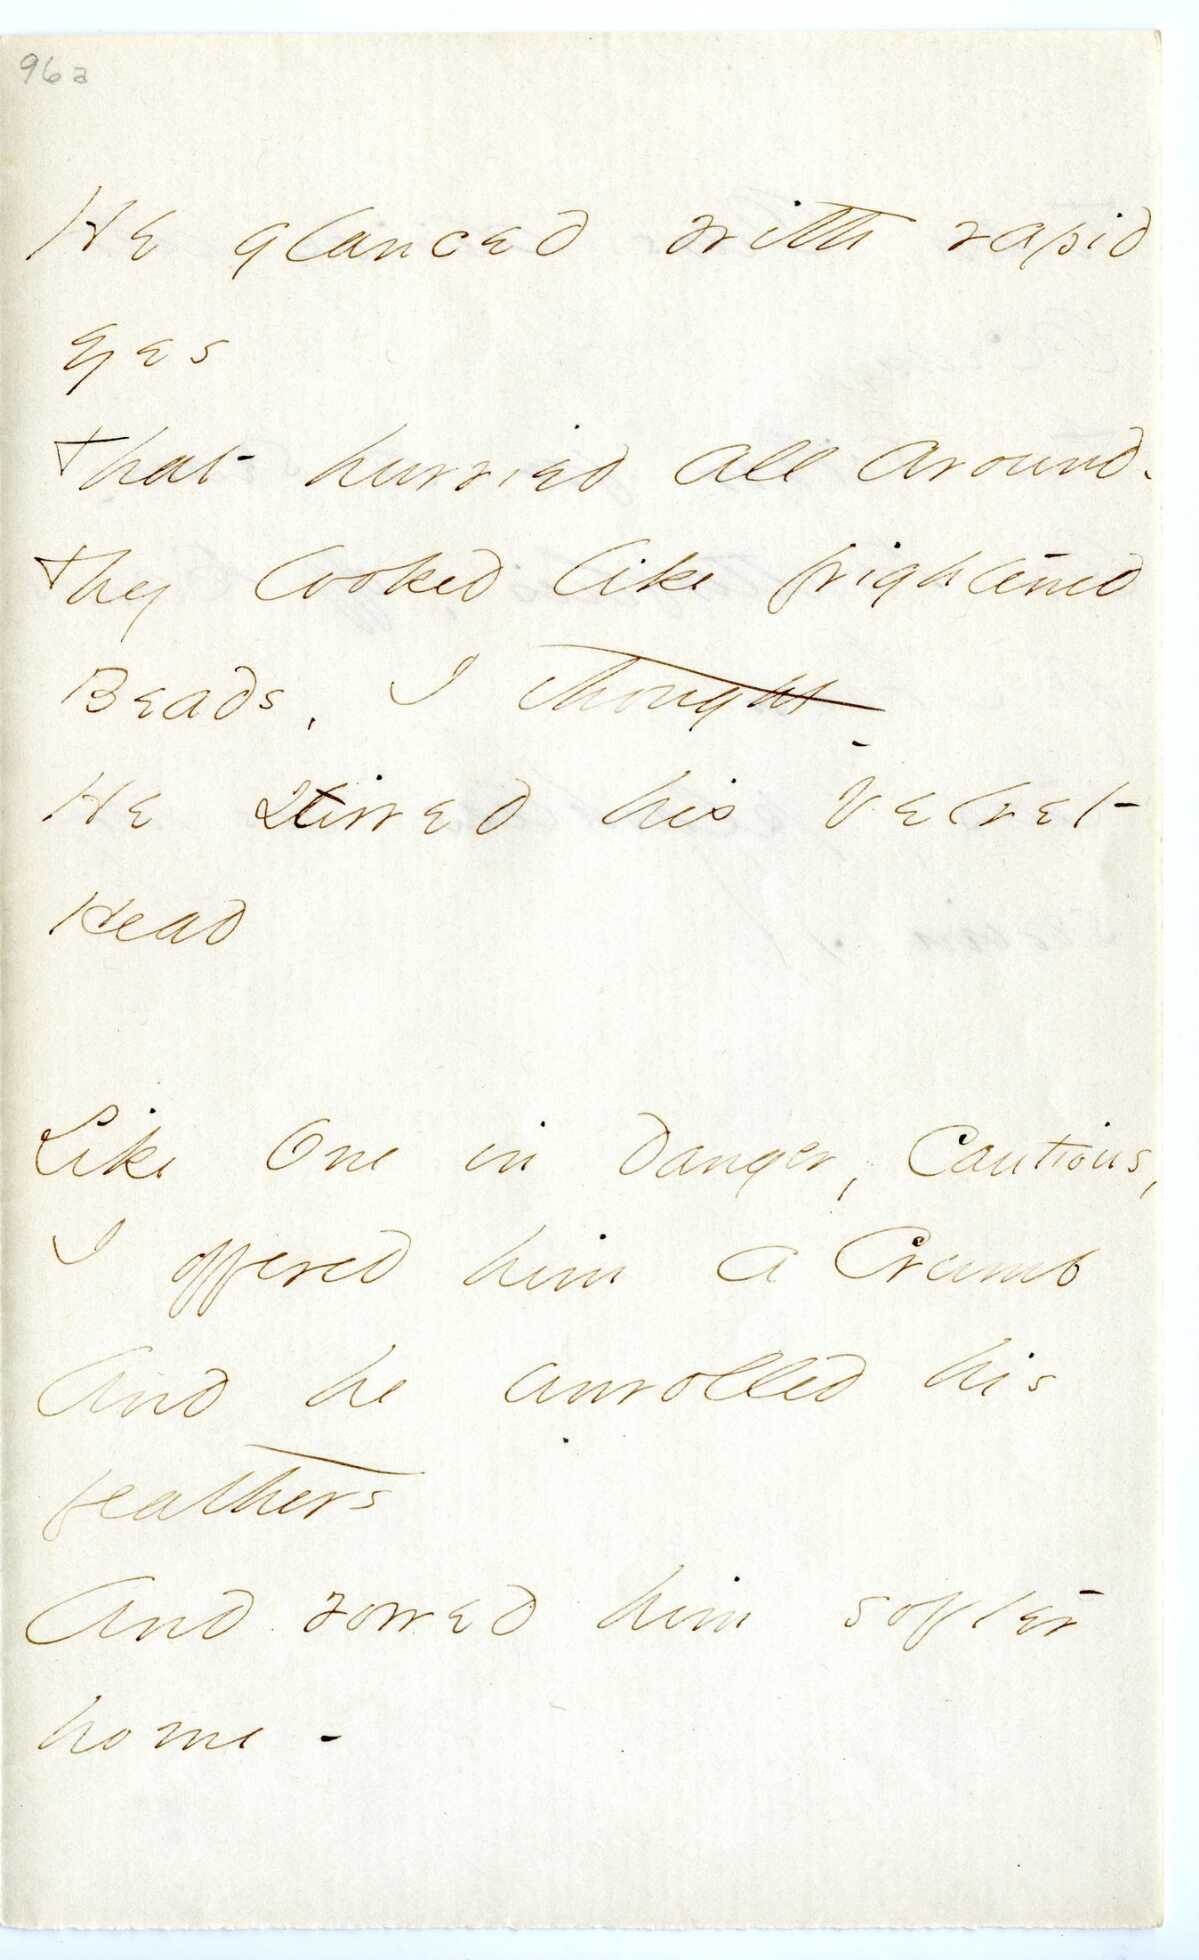 96a
He glanced with rapid
eyes
That hurried all around -
They looked like frightened
Beads, I thought -
He stirred his Velvet
Head
Like One in danger, Cautious,
I offered him a Crumb
And he unrolled his
feathers
And rowed him softer
home -